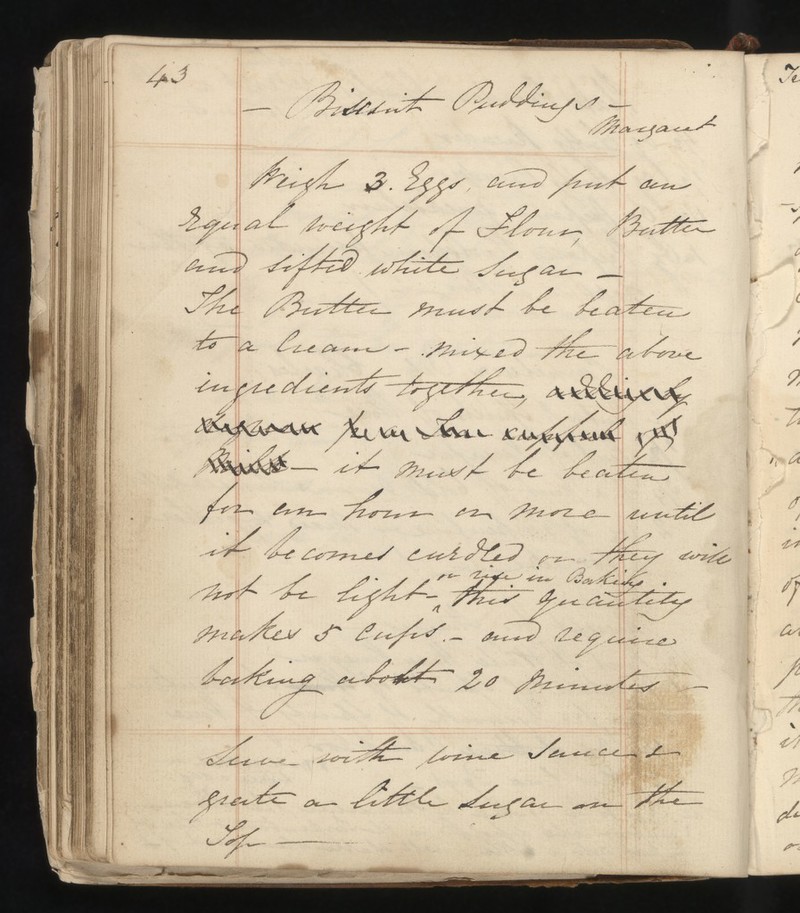 43
— Biscuit Puddings —
Margaret
Weigh 3. Eggs, and put an
Equal weight of Flour, Butter
and sifted white Sugar —
The Butter must be beaten
to a Cream - mixed the above
ingredients together,
— it must be beaten
for an hour or more until
it becomes curdled or they will
or rise in Baking.
not be light - this quantity
makes 5 cups. - and require
baking about 20 minutes —
Serve with wine Sauce &
grate a little Sugar on the
Top —